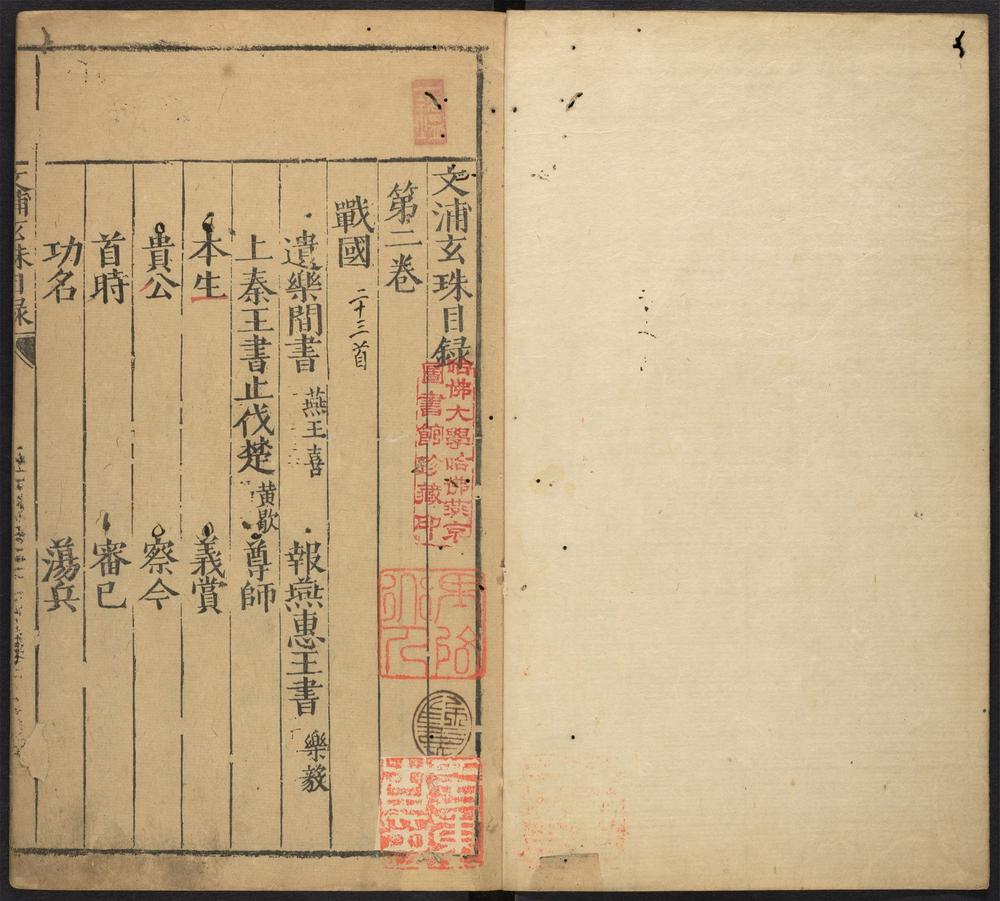 文浦玄珠目録
第二卷
戰國 二十三首
遺樂間書 燕王喜 報燕惠王書 樂毅
上秦王書止伐楚 黃歇 尊師
本生 義賞
貴公 察今
首時 審已
功名 蕩兵
文浦玄珠目録
哈佛大學哈佛燕京
圖書館珍藏印